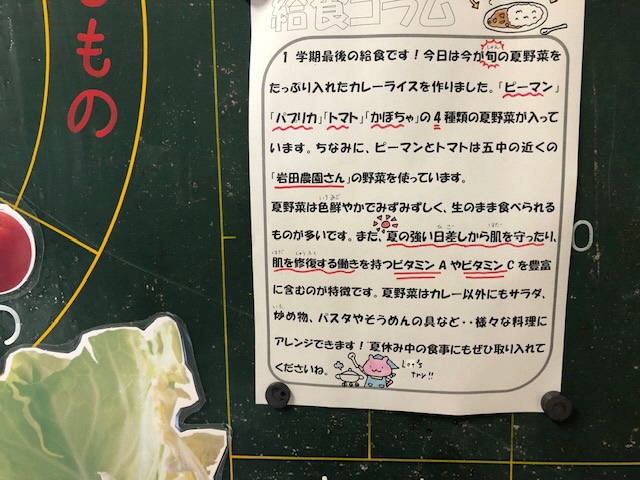 給食コラム
1学期最後の給食です！今日は今が旬の夏野菜を
たっぷり入れたカレーライスを作りました。「ピーマン」
「パプリカ」「トマト」「かぼちゃ」の4種類の夏野菜が入って
います。ちなみに、ピーマンとトマトは五中の近くの
「岩田農園さん」の野菜を使っています。
夏野菜は色鮮やかでみずみずしく、生のまま食べられる
ものが多いです。また、夏の強い日差しから肌を守ったり、
肌を修復する働きを持つビタミンAやビタミンCを豊富
に含むのが特徴です。夏野菜はカレー以外にもサラダ、
炒め物、パスタやそうめんの具など・・様々な料理に
アレンジできます！夏休み中の食事にもぜひ取り入れて
くださいね。
Let's
try!!
もの